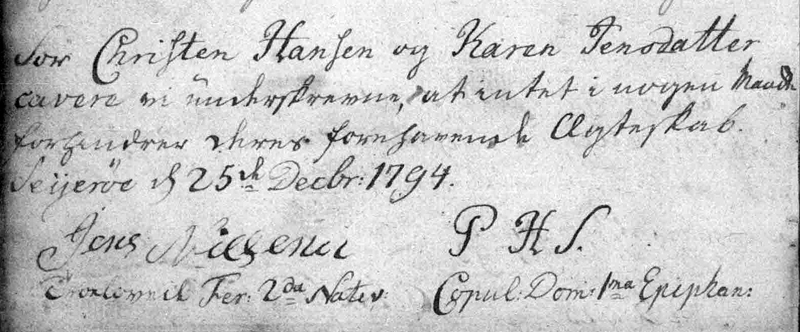 For Christen Hansen og Karen Jensdatter
cavere vi underskrevne, at intet i nogen Maade
forhindrer deres forehavende Ægteskab.
Seijerøe d 25de Decbr: 1794.
Jens Nielsen P H S.
Troelovede Fer: 2da Nativ: Copul: Dom: 1ma Epiphan: